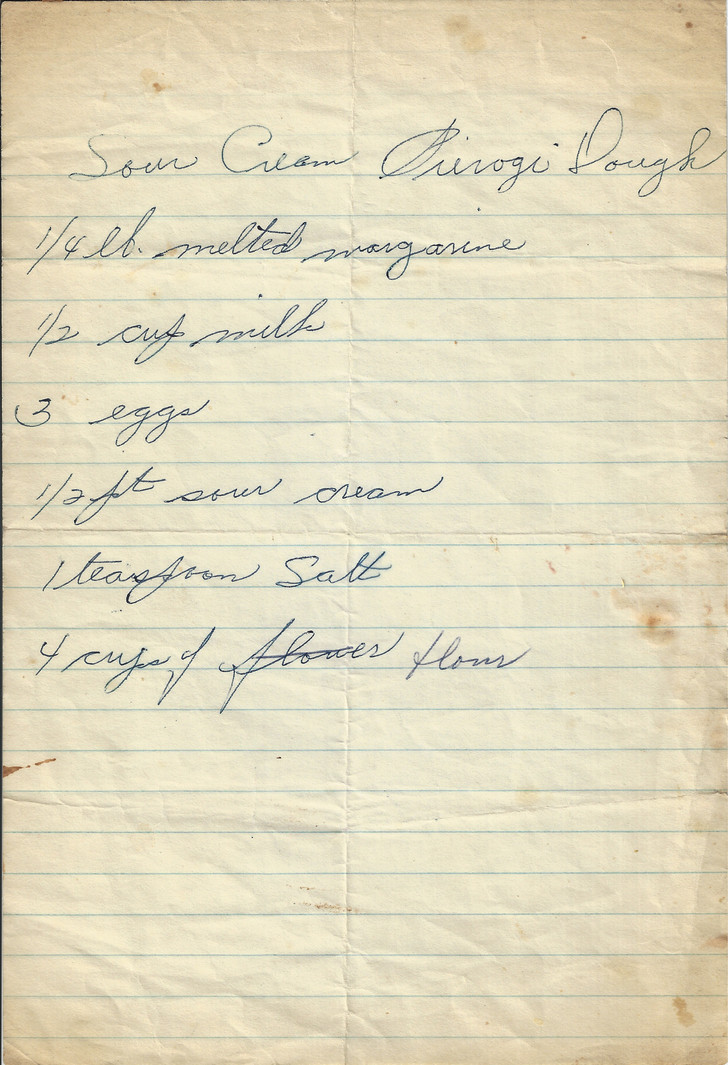 Sour Cream Pierogi Dough
1/4 lb. melted margarine
1/2 cup milk
3 eggs
1/2 pt sour cream
1 teaspoon Salt
4 cups of flower flour